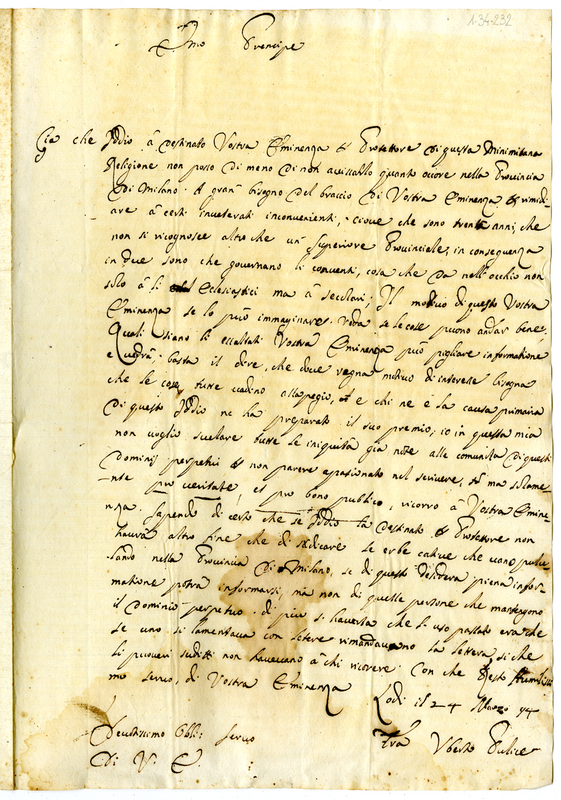 1-34-232
Emo Prencipe
Gia che Iddio à destinato Vostra Eminenza Protettore di questa Minimitana
Religione non posso di meno di non avisarlo quanto occore nella Provincia
di Milano. A gran bisogno del braccio di Vostra Eminenza rimedi-
are à certi inveterati inconvenienti, cioue che sono trent anni, che
non si ricognosce altro che un Superiore Provinciale, in conseguenza
in due sono che governano li conventi, cosa che da nell'occhio non
solo à li Eclesiastici ma à secolari; Il motivo di questo Vostra
Eminenza se lo può immaginare. Veda se le cose puono andar bene.
Quali siano li eccessi Vostra Eminenza può pigliare informatione
e vedrà. basta il dire, che dove regna motivo di interesse bisogna
che le cose tutte vadino alla pegio, e chi ne è la causa primaria
di questo Iddio ne ha preparato il suo premio; io in questa mia
non voglio svelare tutte le iniquità già note alle comunità di questi
Dominij perpetui non parere apasionato nel scrivere, ma solame-
-nte pro veritate, et pro bono publico, ricorro à Vostra Emine-
nza. Sapendo di certo che se Iddio la destinato Protettore non
haurà altro fine che di sradicare le erbe cative che vano pulu-
lando nella Provincia di Milano, se di questo desidera piena infor-
matione potra informarsi, ma non di quelle persone che mantengono
il Dominio perpetuo. di più si haverta che li uso passato era che
se uno si lamentava con letere rimandavano la lettera, si che
li poveri suditi non havevano à chi ricorere. Con che resto Humiliss
mo servo, di Vostra Eminenza
Lodi il 24 Marzo 94
Devotissimo Obblig. servo
Di V. E.
Fra Uberto Pulice